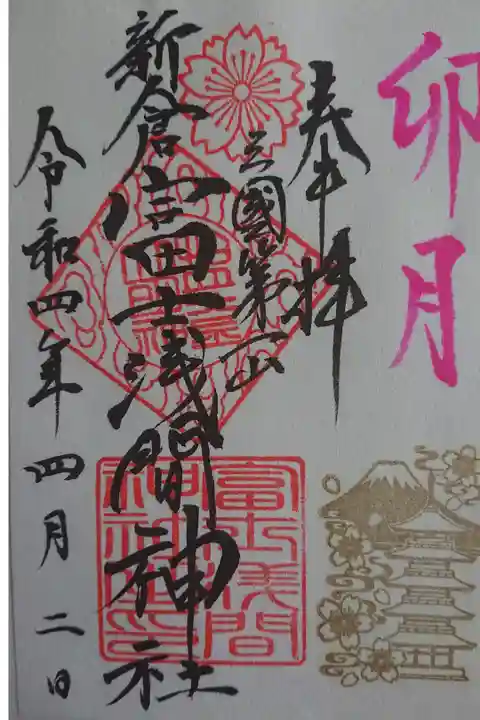 卯月
奉拝
三國第一山
新倉富士浅間神社
令和四年四月二日
富士浅間
神社之印